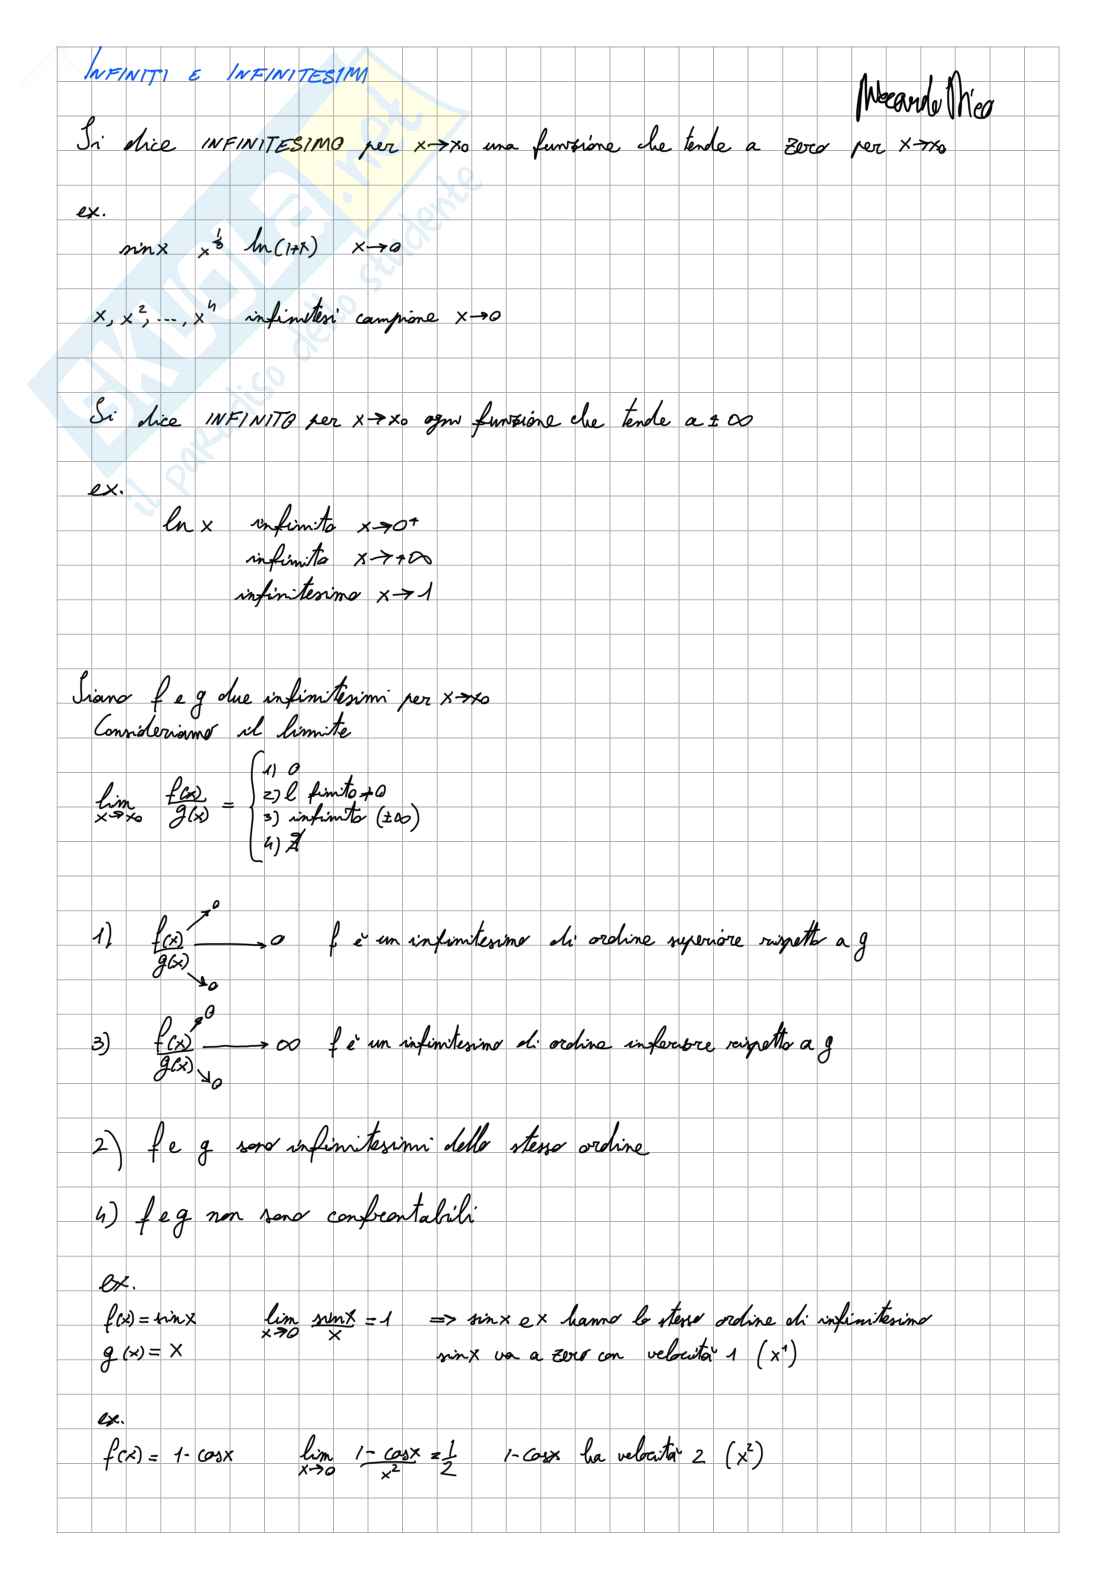 INFINITI E INFINITESIMI
Si dice INFINITESIMO per x→x₀ una funzione che tende a zero per x→x₀
ex.
sinx x^{1/3} ln(1+x) x→0
x, x², ..., x⁴ infinitesi campione x→0
Si dice INFINITO per x→x₀ ogni funzione che tende a ±∞
ex.
ln x infinito x→0⁺
infinito x→+∞
infinitesimo x→1
Siano f e g due infinitesimi per x→x₀
Consideriamo il limite
lim x→x₀ f(x)/g(x) = { 1) 0
2) l finito ≠0
3) infinito (±∞)
4) ∄
1) f(x)→0 / g(x)→0 → 0 f è un infinitesimo di ordine superiore rispetto a g
3) f(x)→0 / g(x)→0 → ∞ f è un infinitesimo di ordine inferiore rispetto a g
2) f e g sono infinitesimi dello stesso ordine
4) f e g non sono confrontabili
ex.
f(x) = sinx lim x→0 sinx/x = 1 => sinx e x hanno lo stesso ordine di infinitesimo
g(x) = x sinx va a zero con velocità 1 (x¹)
ex.
f(x) = 1-cosx lim x→0 1-cosx/x² = 1/2 1-cosx ha velocità 2 (x²)
SKUOLA.net
il paradiso dello studente